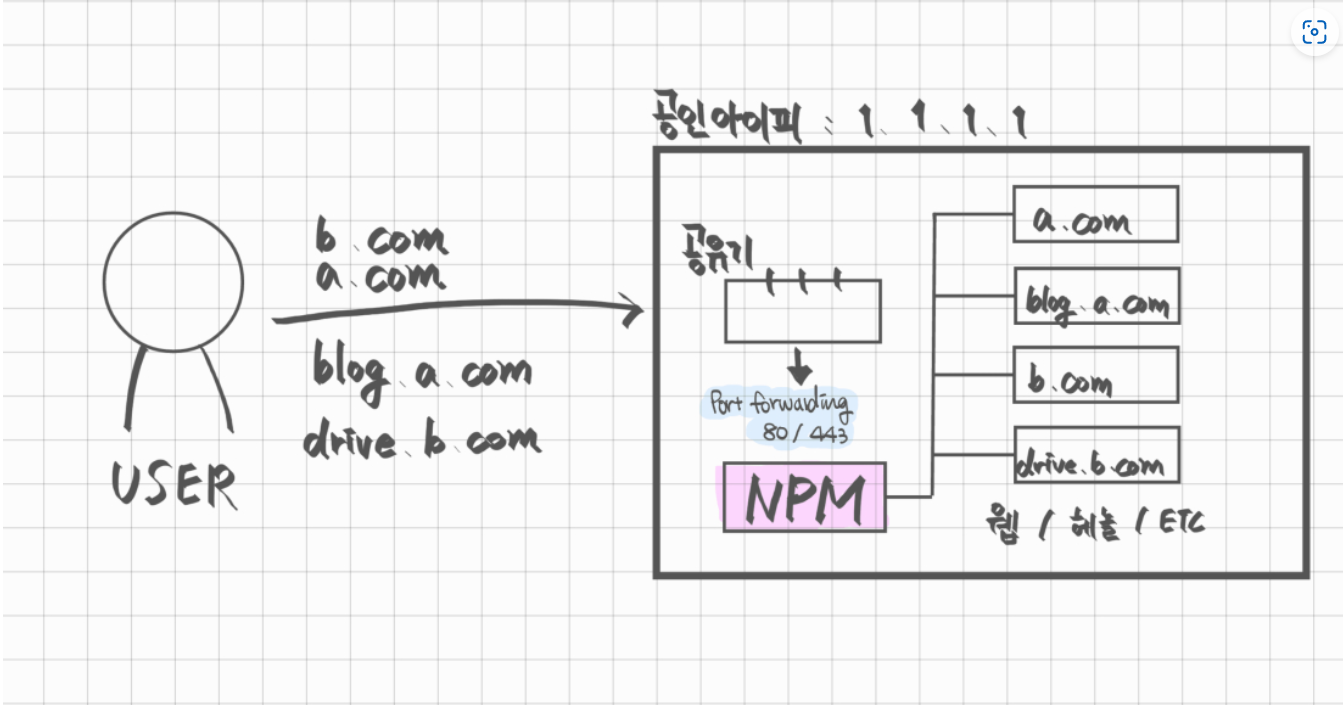 공인아이피 : 1. 1. 1. 1
b.com
a.com
blog.a.com
drive.b.com
USER
공유기
Port forwarding
80 / 443
NPM
a.com
blog.a.com
b.com
drive.b.com
웹 / 헤놀 / ETC